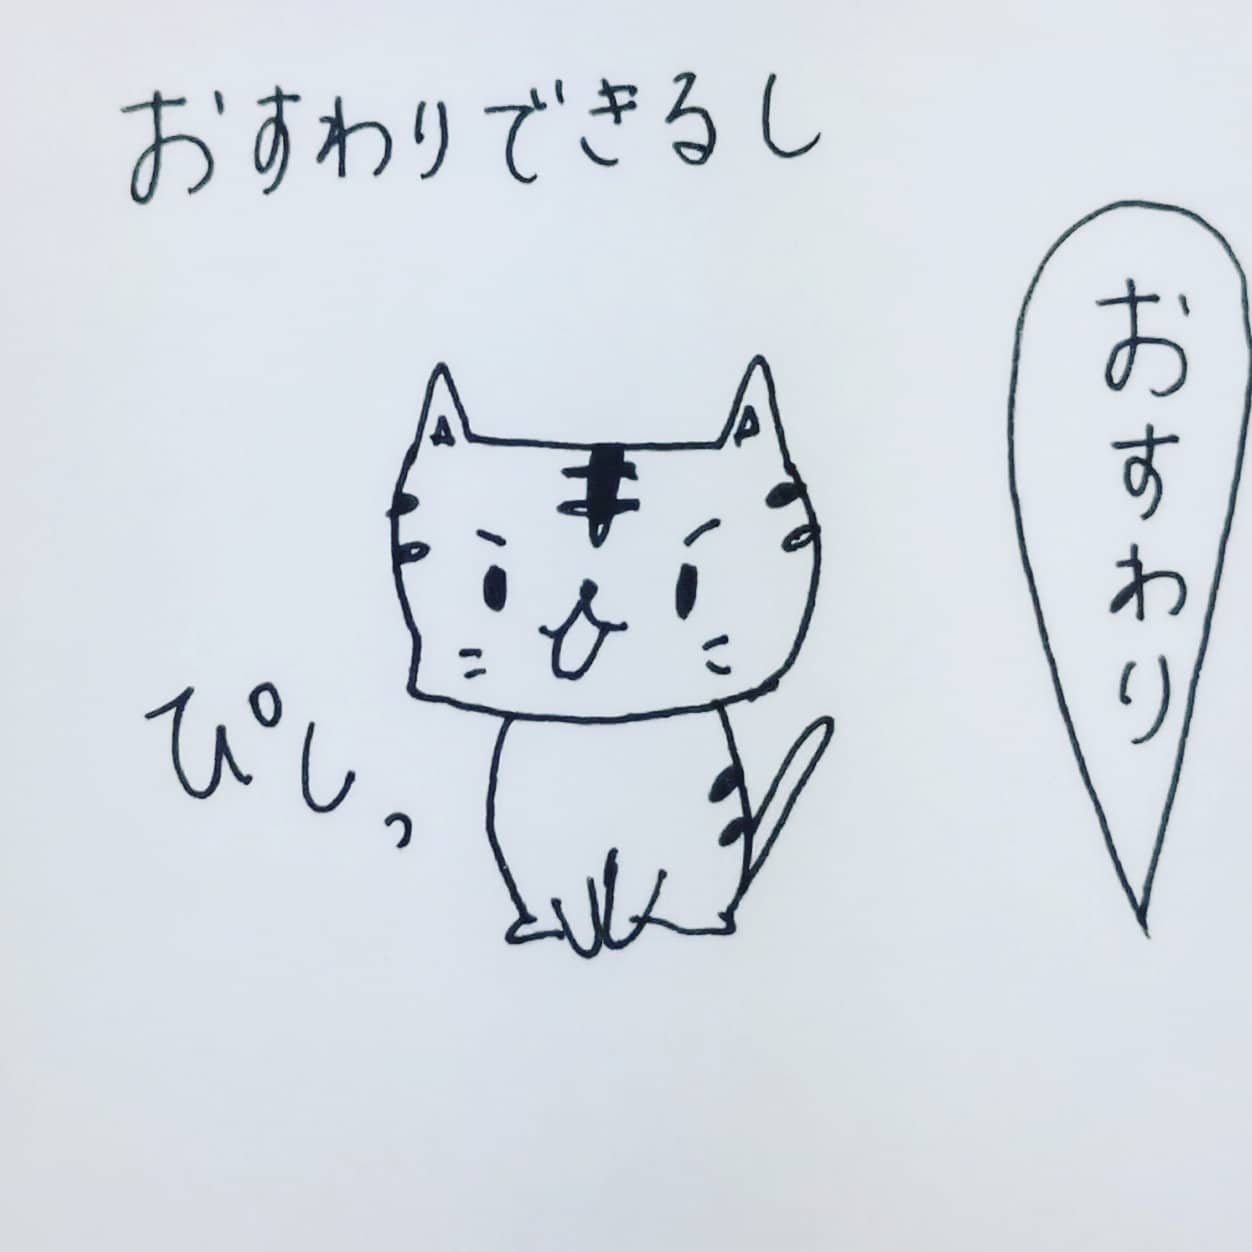 おすわりできるし
おすわり
ぴしっ